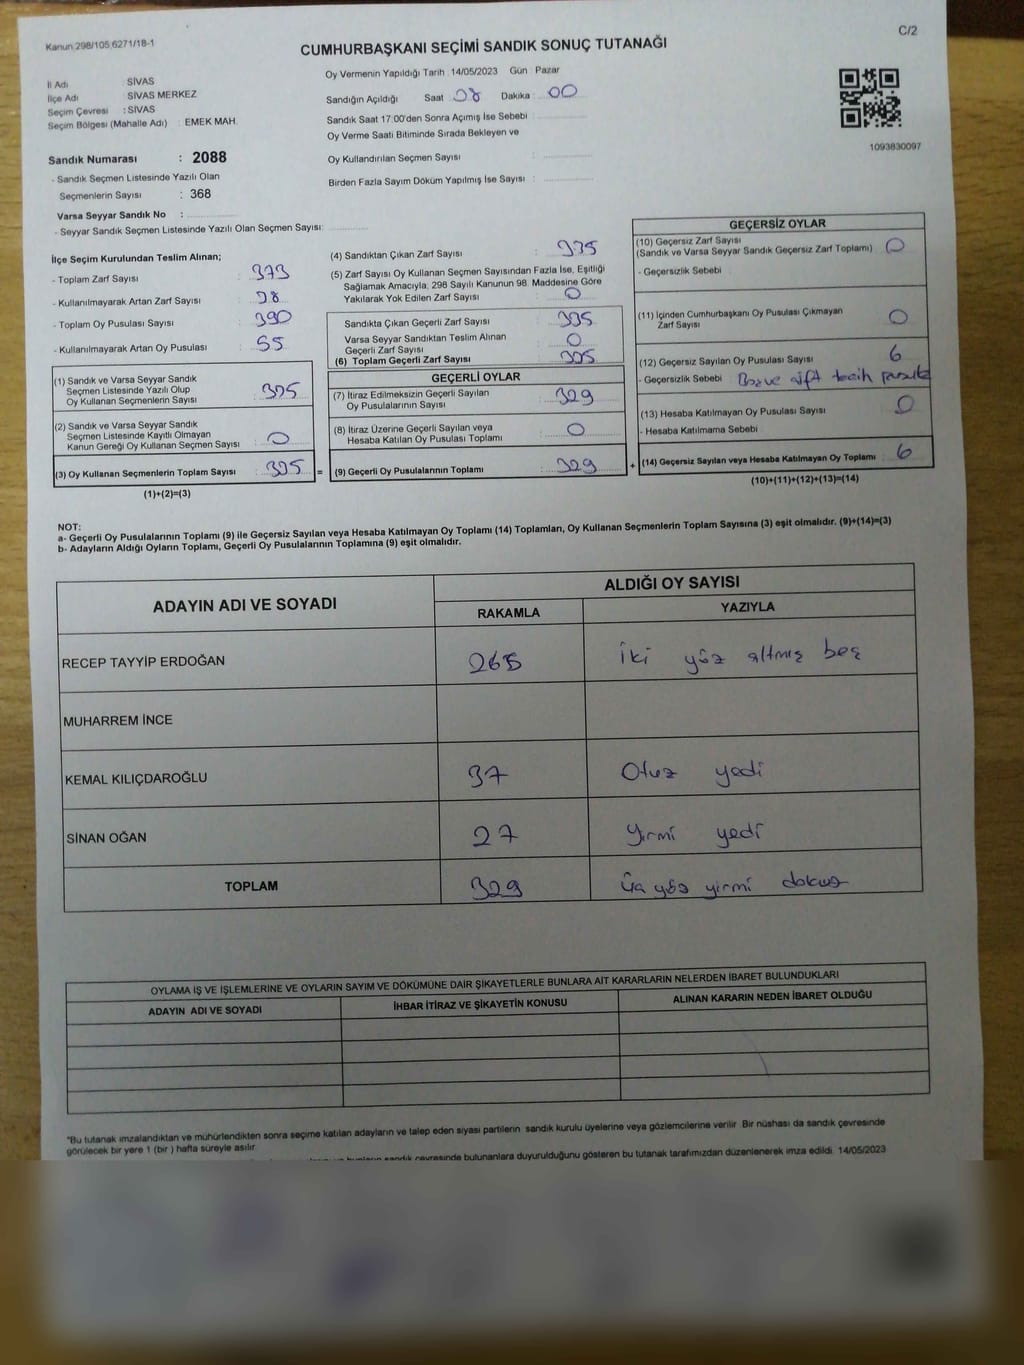 Kanun 298/105 6271/18-1
C/2
CUMHURBAŞKANI SEÇİMİ SANDIK SONUÇ TUTANAĞI
İl Adı : SİVAS
İlçe Adı : SİVAS MERKEZ
Seçim Çevresi : SİVAS
Seçim Bölgesi (Mahalle Adı) : EMEK MAH.
Sandık Numarası : 2088
- Sandık Seçmen Listesinde Yazılı Olan
Seçmenlerin Sayısı : 368
Varsa Seyyar Sandık No :
- Seyyar Sandık Seçmen Listesinde Yazılı Olan Seçmen Sayısı:
Oy Vermenin Yapıldığı Tarih : 14/05/2023 Gün : Pazar
Sandığın Açıldığı Saat : 08 Dakika : 00
Sandık Saat 17:00'den Sonra Açımış İse Sebebi :
Oy Verme Saati Bitiminde Sırada Bekleyen ve
Oy Kullandırılan Seçmen Sayısı :
Birden Fazla Sayım Döküm Yapılmış İse Sayısı :
1093830097
İlçe Seçim Kurulundan Teslim Alınan;
- Toplam Zarf Sayısı : 373
- Kullanılmayarak Artan Zarf Sayısı : 38
- Toplam Oy Pusulası Sayısı : 390
- Kullanılmayarak Artan Oy Pusulası : 55
(1) Sandık ve Varsa Seyyar Sandık
Seçmen Listesinde Yazılı Olup
Oy Kullanan Seçmenlerin Sayısı : 335
(2) Sandık ve Varsa Seyyar Sandık
Seçmen Listesinde Kayıtlı Olmayan
Kanun Gereği Oy Kullanan Seçmen Sayısı : 0
(3) Oy Kullanan Seçmenlerin Toplam Sayısı : 335
(1)+(2)=(3)
(4) Sandıktan Çıkan Zarf Sayısı : 335
(5) Zarf Sayısı Oy Kullanan Seçmen Sayısından Fazla İse, Eşitliği
Sağlamak Amacıyla; 298 Sayılı Kanunun 98. Maddesine Göre
Yakılarak Yok Edilen Zarf Sayısı : 0
Sandıkta Çıkan Geçerli Zarf Sayısı : 335
Varsa Seyyar Sandıktan Teslim Alınan
Geçerli Zarf Sayısı : 0
(6) Toplam Geçerli Zarf Sayısı : 335
GEÇERLİ OYLAR
(7) İtiraz Edilmeksizin Geçerli Sayılan
Oy Pusulalarının Sayısı : 329
(8) İtiraz Üzerine Geçerli Sayılan veya
Hesaba Katılan Oy Pusulası Toplamı : 0
= (9) Geçerli Oy Pusulalarının Toplamı : 329
GEÇERSİZ OYLAR
(10) Geçersiz Zarf Sayısı
(Sandık ve Varsa Seyyar Sandık Geçersiz Zarf Toplamı) : 0
- Geçersizlik Sebebi :
(11) İçinden Cumhurbaşkanı Oy Pusulası Çıkmayan
Zarf Sayısı : 0
(12) Geçersiz Sayılan Oy Pusulası Sayısı : 6
- Geçersizlik Sebebi : Boş ve çift tercih pusula
(13) Hesaba Katılmayan Oy Pusulası Sayısı : 0
- Hesaba Katılmama Sebebi :
+ (14) Geçersiz Sayılan veya Hesaba Katılmayan Oy Toplamı : 6
(10)+(11)+(12)+(13)=(14)
NOT:
a- Geçerli Oy Pusulalarının Toplamı (9) ile Geçersiz Sayılan veya Hesaba Katılmayan Oy Toplamı (14) Toplamları, Oy Kullanan Seçmenlerin Toplam Sayısına (3) eşit olmalıdır. (9)+(14)=(3)
b- Adayların Aldığı Oyların Toplamı, Geçerli Oy Pusulalarının Toplamına (9) eşit olmalıdır.
ADAYIN ADI VE SOYADI
ALDIĞI OY SAYISI
RAKAMLA YAZIYLA
RECEP TAYYİP ERDOĞAN 265 İki yüz altmış beş
MUHARREM İNCE
KEMAL KILIÇDAROĞLU 37 Otuz yedi
SİNAN OĞAN 27 Yirmi yedi
TOPLAM 329 Üç yüz yirmi dokuz
OYLAMA İŞ VE İŞLEMLERİNE VE OYLARIN SAYIM VE DÖKÜMÜNE DAİR ŞİKAYETLERLE BUNLARA AİT KARARLARIN NELERDEN İBARET BULUNDUKLARI
ADAYIN ADI VE SOYADI İHBAR İTİRAZ VE ŞİKAYETİN KONUSU ALINAN KARARIN NEDEN İBARET OLDUĞU
"Bu tutanak imzalandıktan ve mühürlendikten sonra seçime katılan adayların ve talep eden siyasi partilerin sandık kurulu üyelerine veya gözlemcilerine verilir. Bir nüshası da sandık çevresinde
görülecek bir yere 1 (bir ) hafta süreyle asılır.
sandık çevresinde bulunanlara duyurulduğunu gösteren bu tutanak tarafımızdan düzenlenerek imza edildi. 14/05/2023